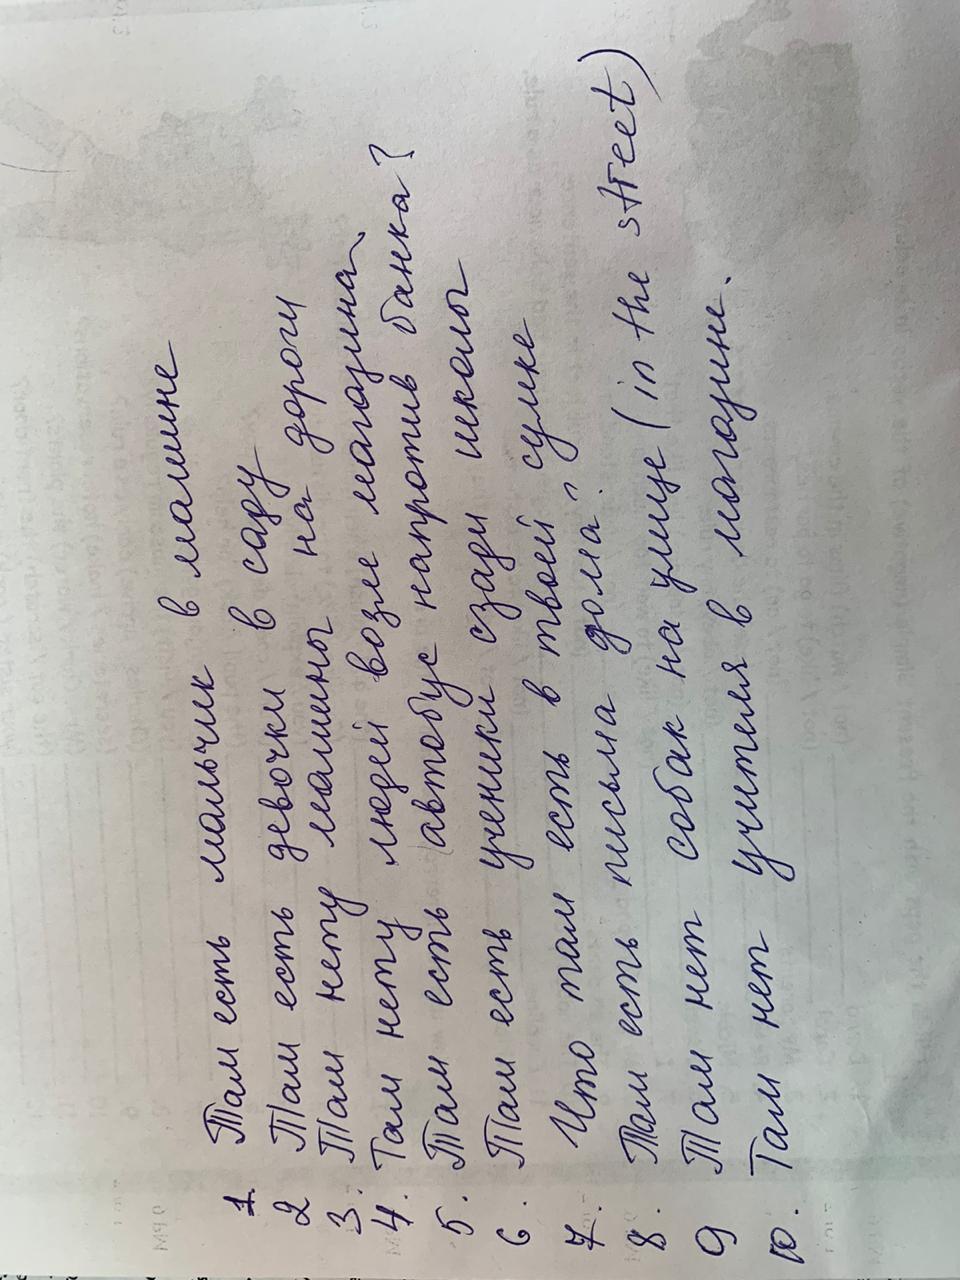 1 Там есть мальчик в машине
2 Там есть девочки в саду
3. Там нету машины на дорогу
4. Там нету людей возле магазина
5. Там есть автобус напротив банка?
6. Там есть ученики сзади школы
7. Что там есть в твоей сумке
8. Там есть письма дома.
9 Там нет собак на улице (in the street)
10. Там нет учителя в магазине.